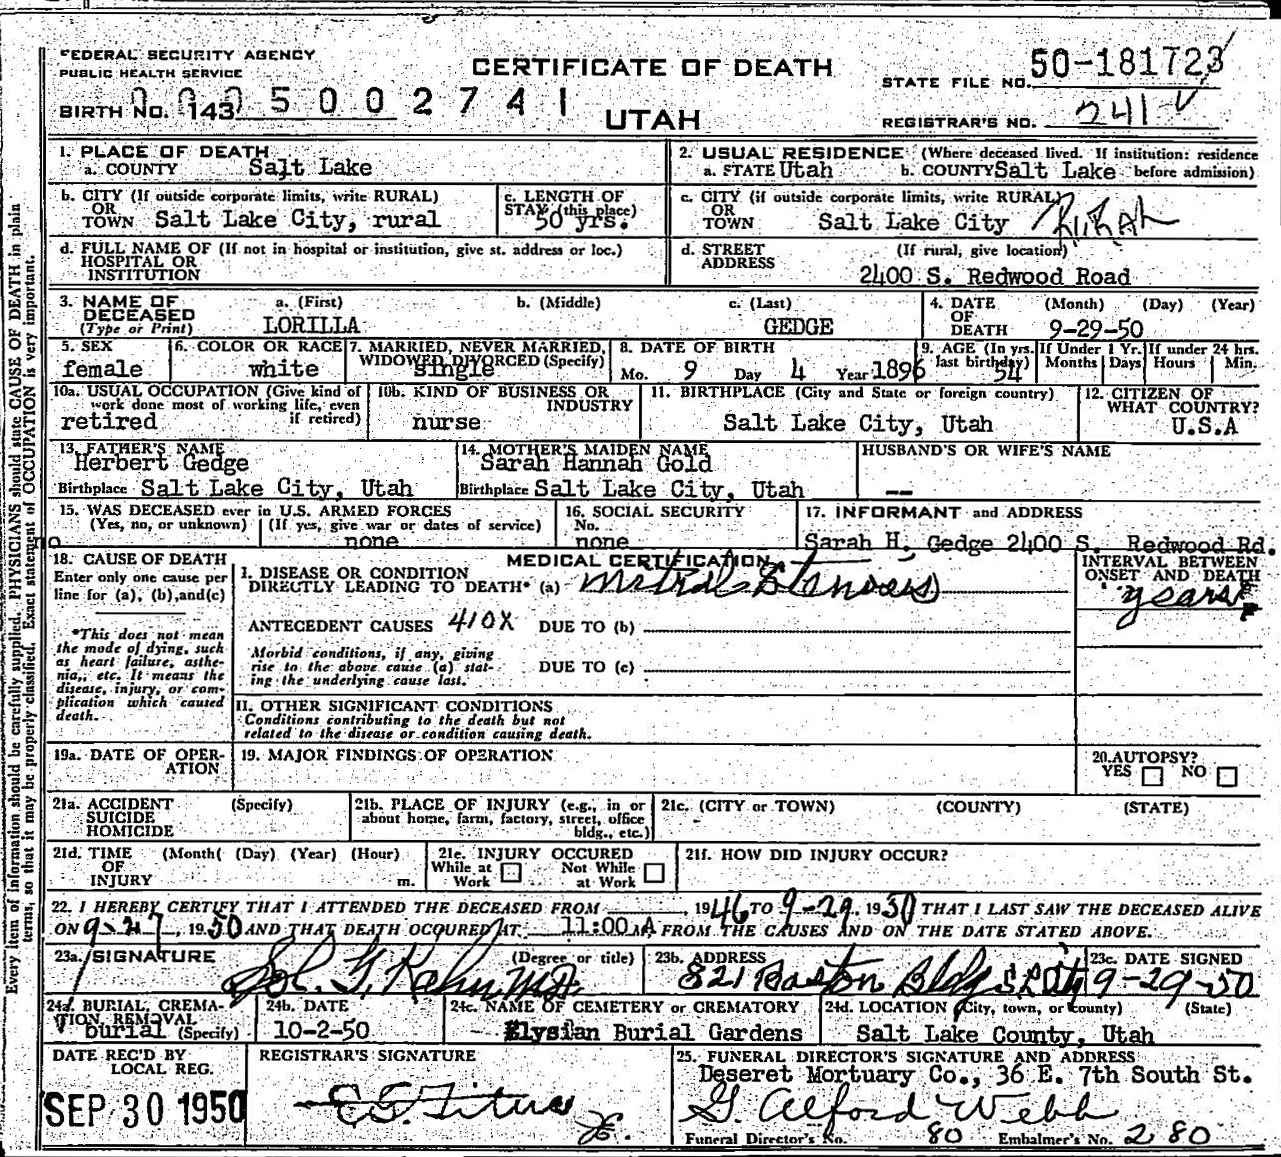 FEDERAL SECURITY AGENCY
PUBLIC HEALTH SERVICE
CERTIFICATE OF DEATH
UTAH
STATE FILE NO. 50-181723
BIRTH NO. 143 0005002741
REGISTRAR'S NO. 241
Every item of information should be carefully supplied. PHYSICIANS should state CAUSE OF DEATH in plain
terms, so that it may be properly classified. Exact statement of OCCUPATION is very important.
1. PLACE OF DEATH
a. COUNTY Salt Lake
2. USUAL RESIDENCE (Where deceased lived. If institution: residence
a. STATE Utah b. COUNTY Salt Lake before admission)
b. CITY (If outside corporate limits, write RURAL)
OR
TOWN Salt Lake City, rural
c. LENGTH OF
STAY (this place)
50 yrs.
c. CITY (if outside corporate limits, write RURAL)
OR
TOWN Salt Lake City Rural
d. FULL NAME OF (If not in hospital or institution, give st. address or loc.)
HOSPITAL OR
INSTITUTION
d. STREET (If rural, give location)
ADDRESS
2400 S. Redwood Road
3. NAME OF a. (First) b. (Middle) c. (Last)
DECEASED
(Type or Print) LORILLA GEDGE
4. DATE (Month) (Day) (Year)
OF
DEATH 9-29-50
5. SEX
female
6. COLOR OR RACE
white
7. MARRIED, NEVER MARRIED,
WIDOWED DIVORCED (Specify)
single
8. DATE OF BIRTH
Mo. 9 Day 4 Year 1896
9. AGE (In yrs.
last birthday)
54
If Under 1 Yr.
Months Days
If under 24 hrs.
Hours Min.
10a. USUAL OCCUPATION (Give kind of
work done most of working life, even
if retired)
retired
10b. KIND OF BUSINESS OR
INDUSTRY
nurse
11. BIRTHPLACE (City and State or foreign country)
Salt Lake City, Utah
12. CITIZEN OF
WHAT COUNTRY?
U.S.A
13. FATHER'S NAME
Herbert Gedge
Birthplace Salt Lake City, Utah
14. MOTHER'S MAIDEN NAME
Sarah Hannah Gold
Birthplace Salt Lake City, Utah
HUSBAND'S OR WIFE'S NAME
--
15. WAS DECEASED ever in U.S. ARMED FORCES
(Yes, no, or unknown) (If yes, give war or dates of service)
no none
16. SOCIAL SECURITY
No.
none
17. INFORMANT and ADDRESS
Sarah H. Gedge 2400 S. Redwood Rd.
18. CAUSE OF DEATH
Enter only one cause per
line for (a), (b), and (c)
*This does not mean
the mode of dying, such
as heart failure, asthe-
nia, etc. It means the
disease, injury, or com-
plication which caused
death.
MEDICAL CERTIFICATION
I. DISEASE OR CONDITION
DIRECTLY LEADING TO DEATH* (a) Mitral Stenosis
ANTECEDENT CAUSES 410X DUE TO (b)
Morbid conditions, if any, giving
rise to the above cause (a) stat-
ing the underlying cause last.
DUE TO (c)
II. OTHER SIGNIFICANT CONDITIONS
Conditions contributing to the death but not
related to the disease or condition causing death.
INTERVAL BETWEEN
ONSET AND DEATH
years
19a. DATE OF OPER-
ATION
19. MAJOR FINDINGS OF OPERATION
20. AUTOPSY?
YES NO
21a. ACCIDENT (Specify)
SUICIDE
HOMICIDE
21b. PLACE OF INJURY (e.g., in or
about home, farm, factory, street, office
bldg., etc.)
21c. (CITY or TOWN) (COUNTY) (STATE)
21d. TIME (Month( (Day) (Year) (Hour)
OF
INJURY m.
21e. INJURY OCCURED
While at Work
Not While at Work
21f. HOW DID INJURY OCCUR?
22. I HEREBY CERTIFY THAT I ATTENDED THE DECEASED FROM , 1946 TO 9-29, 1950 THAT I LAST SAW THE DECEASED ALIVE
ON 9-27, 1950 AND THAT DEATH OCCURED AT 11:00 A M FROM THE CAUSES AND ON THE DATE STATED ABOVE.
23a. SIGNATURE (Degree or title)
Sol. G. Kahn MD
23b. ADDRESS
821 Boston Bldg SL City
23c. DATE SIGNED
9-29-50
24a. BURIAL CREMA-
TION REMOVAL
burial (Specify)
24b. DATE
10-2-50
24c. NAME OF CEMETERY or CREMATORY
Elysian Burial Gardens
24d. LOCATION (City, town, or county) (State)
Salt Lake County, Utah
DATE REC'D BY
LOCAL REG.
SEP 30 1950
REGISTRAR'S SIGNATURE
25. FUNERAL DIRECTOR'S SIGNATURE AND ADDRESS
Deseret Mortuary Co., 36 E. 7th South St.
G. Alford Webb
Funeral Director's No. 80 Embalmer's No. 280